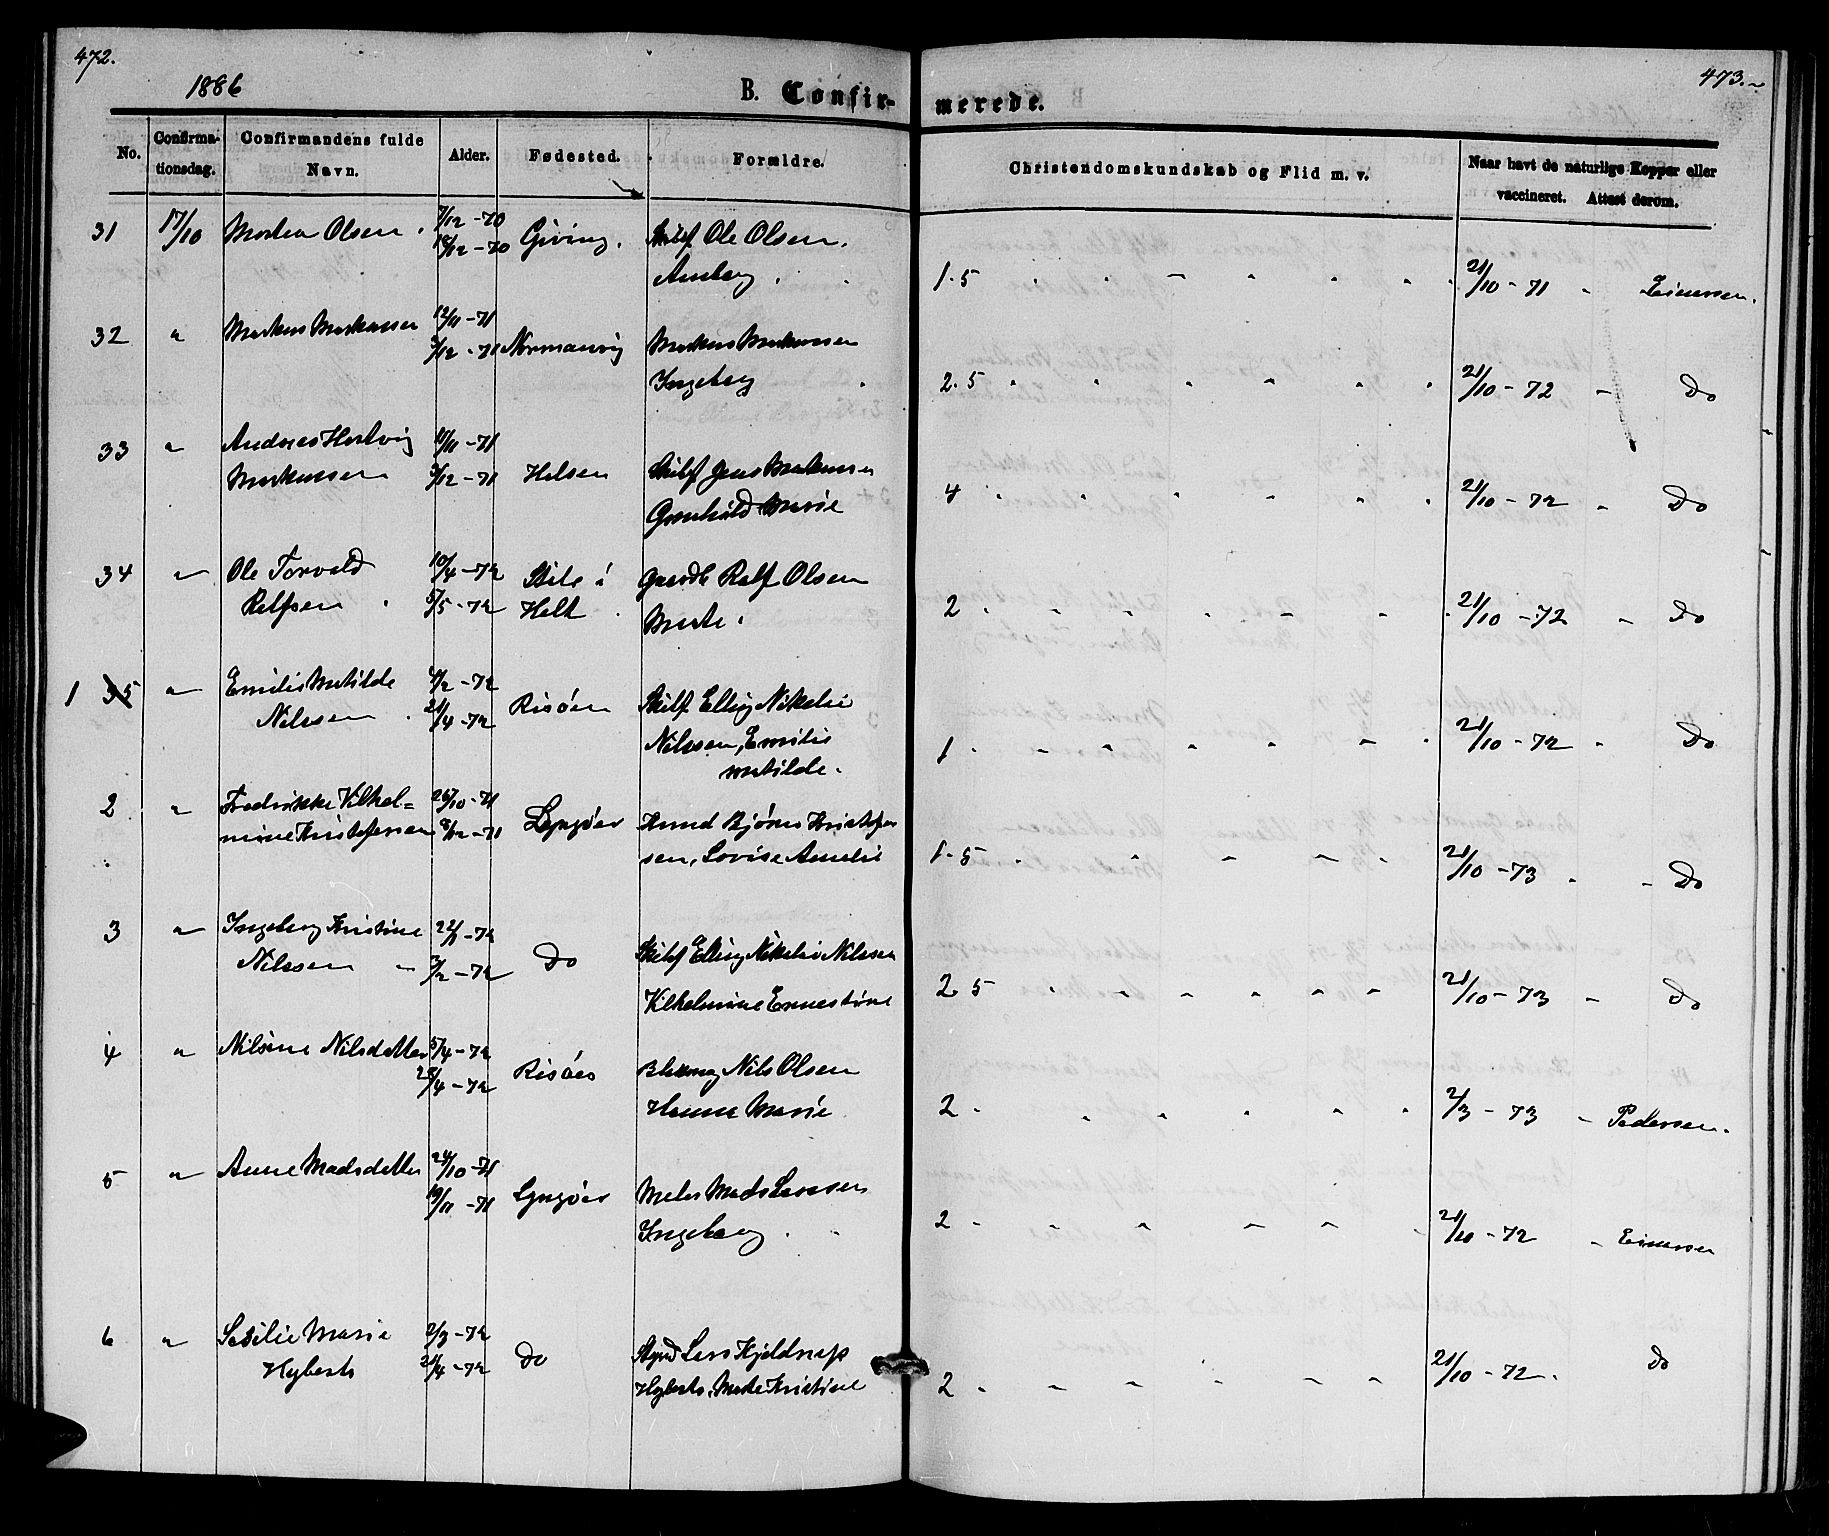 472.
473.
1886
B. Confirmerede.
No.
Confirmationsdag.
Confirmandens fulde Navn.
Alder.
Fødested.
Forældre.
Christendomskundskab og Flid m. v.
Naar havt de naturlige Kopper eller vaccineret. Attest derom.
31 17/10 Olsen 7/12-70 Giving. Ole Olsen. 1.5 21/10-71 Einersen.
18/12-70 Amborg
32 " Markus Markussen 12/11-71 Normanvig Markus Markussen 2.5 21/10-72 Do
3/12-71 Ingeborg
33 " Andreas Hartvig 11/11-71 Helsen Skibsf Jens Markussen 4 21/10-72 Do
Markussen 3/12-71 Gunhild Marie
34 " Ole Torvald 10/4-72 Stile i Gaardb Ralf Olsen 2 21/10-72 Do
Ralfsen 5/5-72 Holt Marte.
1 35 " Emilie Matilde 4/2-72 Risøen Skibsf Elling Nikolai 1 21/10-72 Do
Nilssen 21/4-72 Nilssen, Emilie
Matilde.
2 " Fredrikke Vilhel= 26/10-71 Lyngøer Knud Bjørns Kristofer 1.5 21/10-73 Do
mine Kristofersen 8/12-71 sen, Lovise Amalie
3 " Ingeborg Kristine 22/1-72 Do Skibsf Elling Nikolai Nilssen 2.5 21/10-73 Do
Nilssen 3/2-72 Vilhelmine Ernestine
4 " Nilsine Nilsdatter 5/4-72 Risøer Nils Olsen 2 2/3-73 Pedersen.
28/4-72 Hanne Marie
5 " Anne Madsdatter 24/10-71 Lyngøer Mads Larssen 2 21/10-72 Einersen
19/11-71 Ingeborg
6 " Sesilie Marie 2/3-72 Do Lars Kjeldnap 2 21/10-72 Do
Hyberts 21/4-72 Hyberts, Marte Kristine